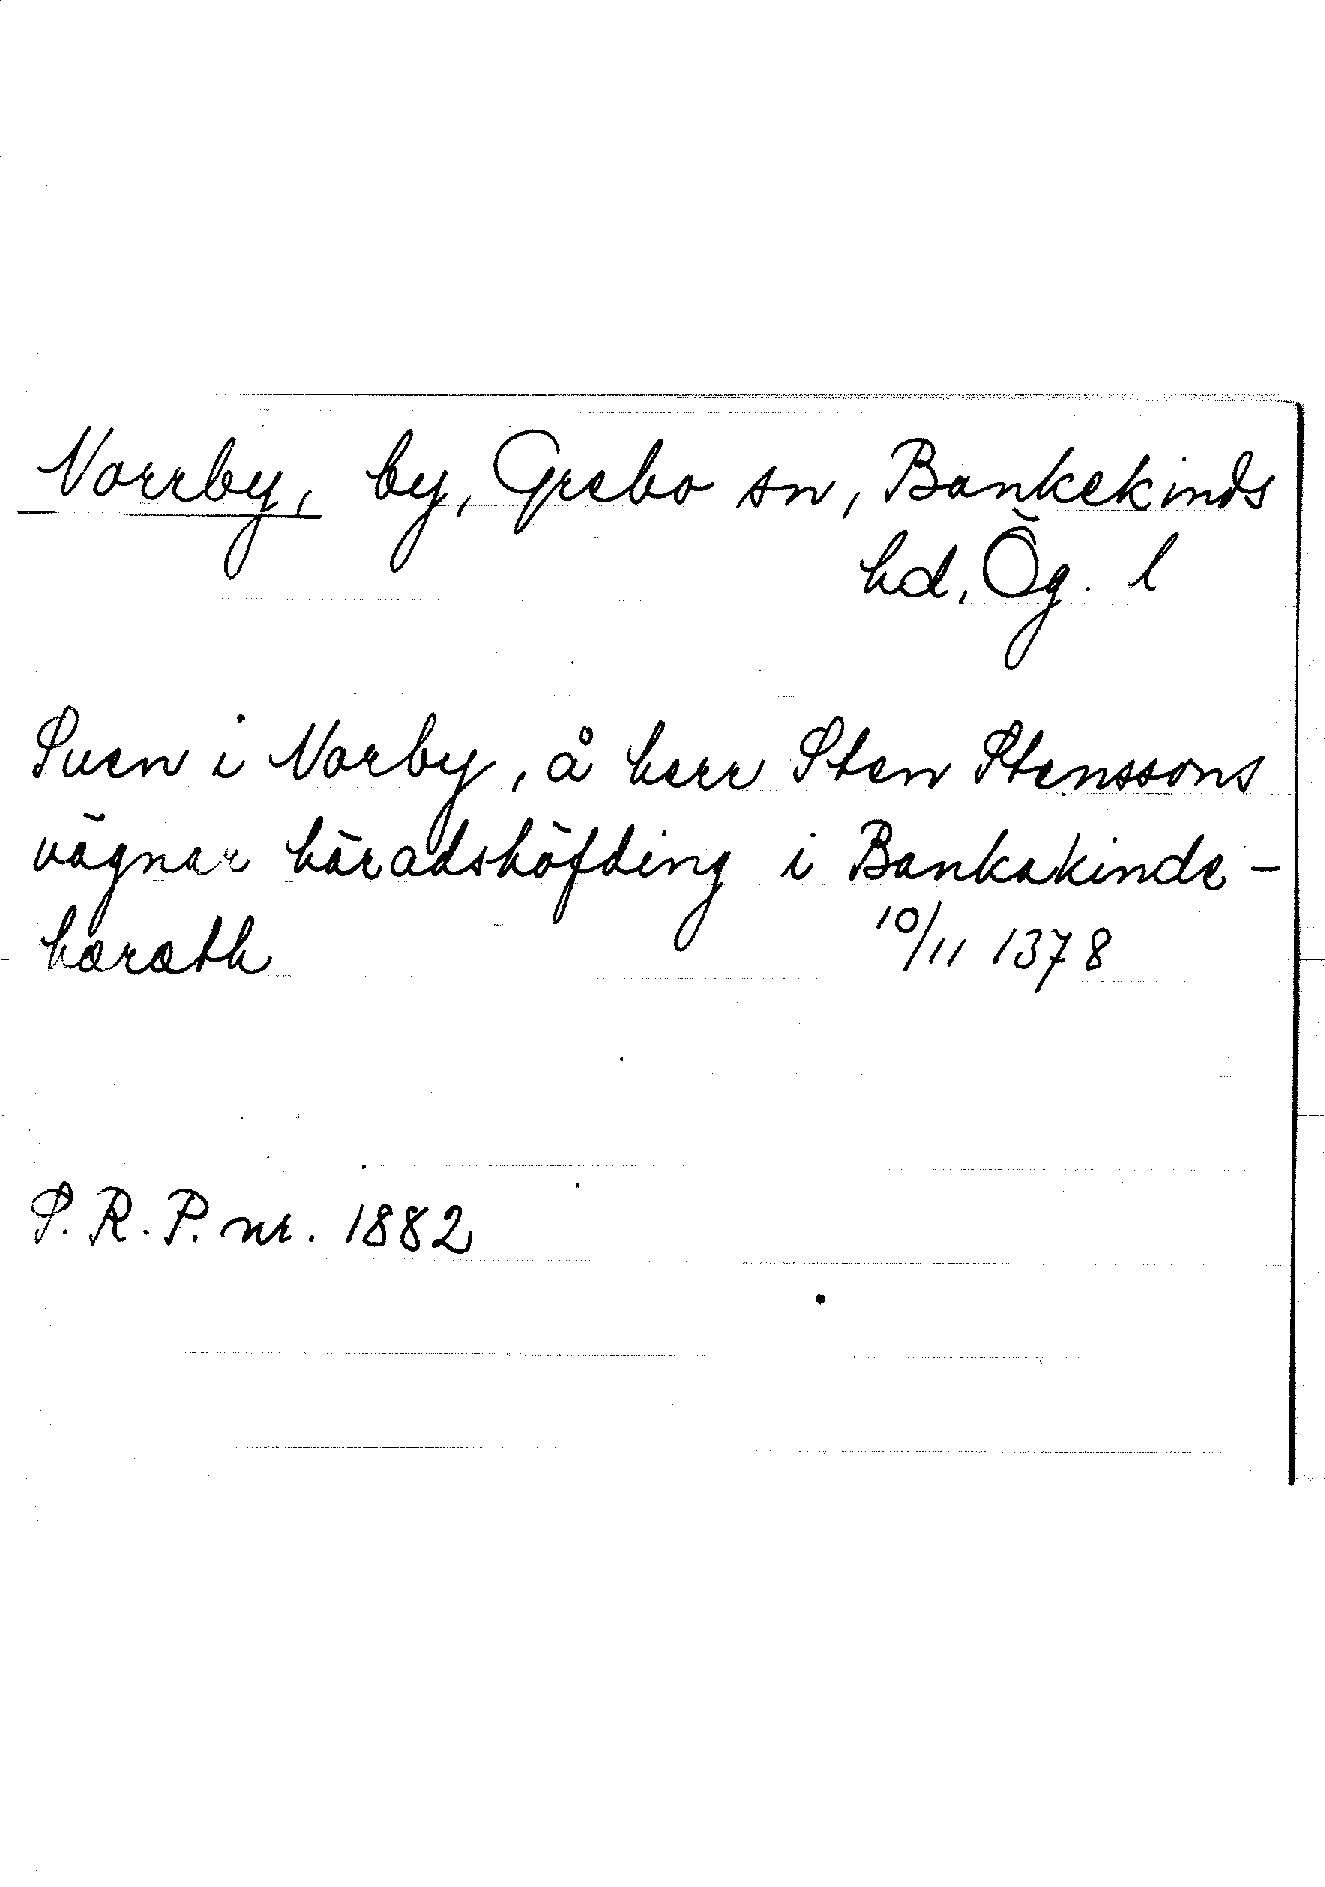 Norrby, by, Grebo sn, Bankekinds
hd, Ög. l
Suen i Norby, å herr Sten Stenssons
vägnar häradshöfding i Bankakinde-
hæræth 10/11 1378
S. R. P. nr. 1882